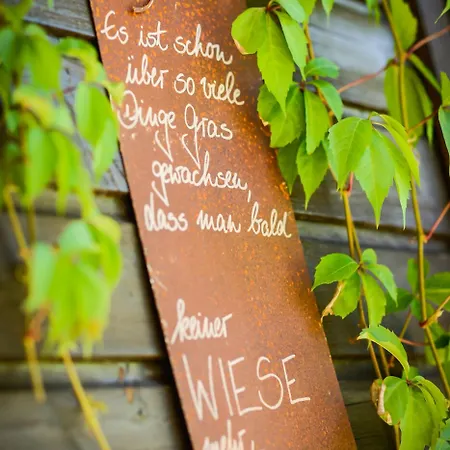 Es ist schon
über so viele
Dinge Gras
gewachsen,
dass man bald
keiner
WIESE
mehr